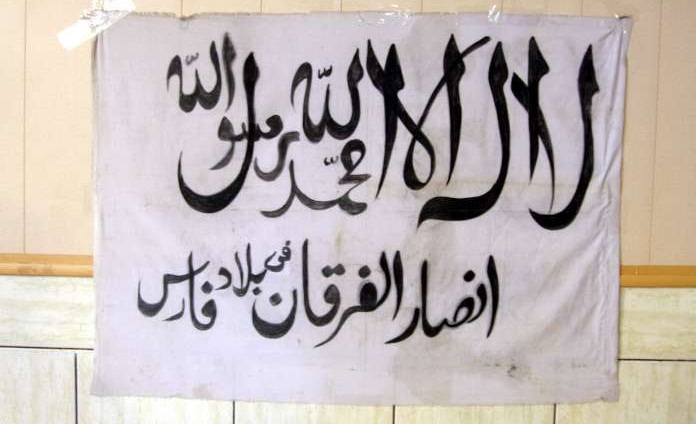 لا اله الا الله محمد رسول الله
انصار الفرقان فی بلاد فارس